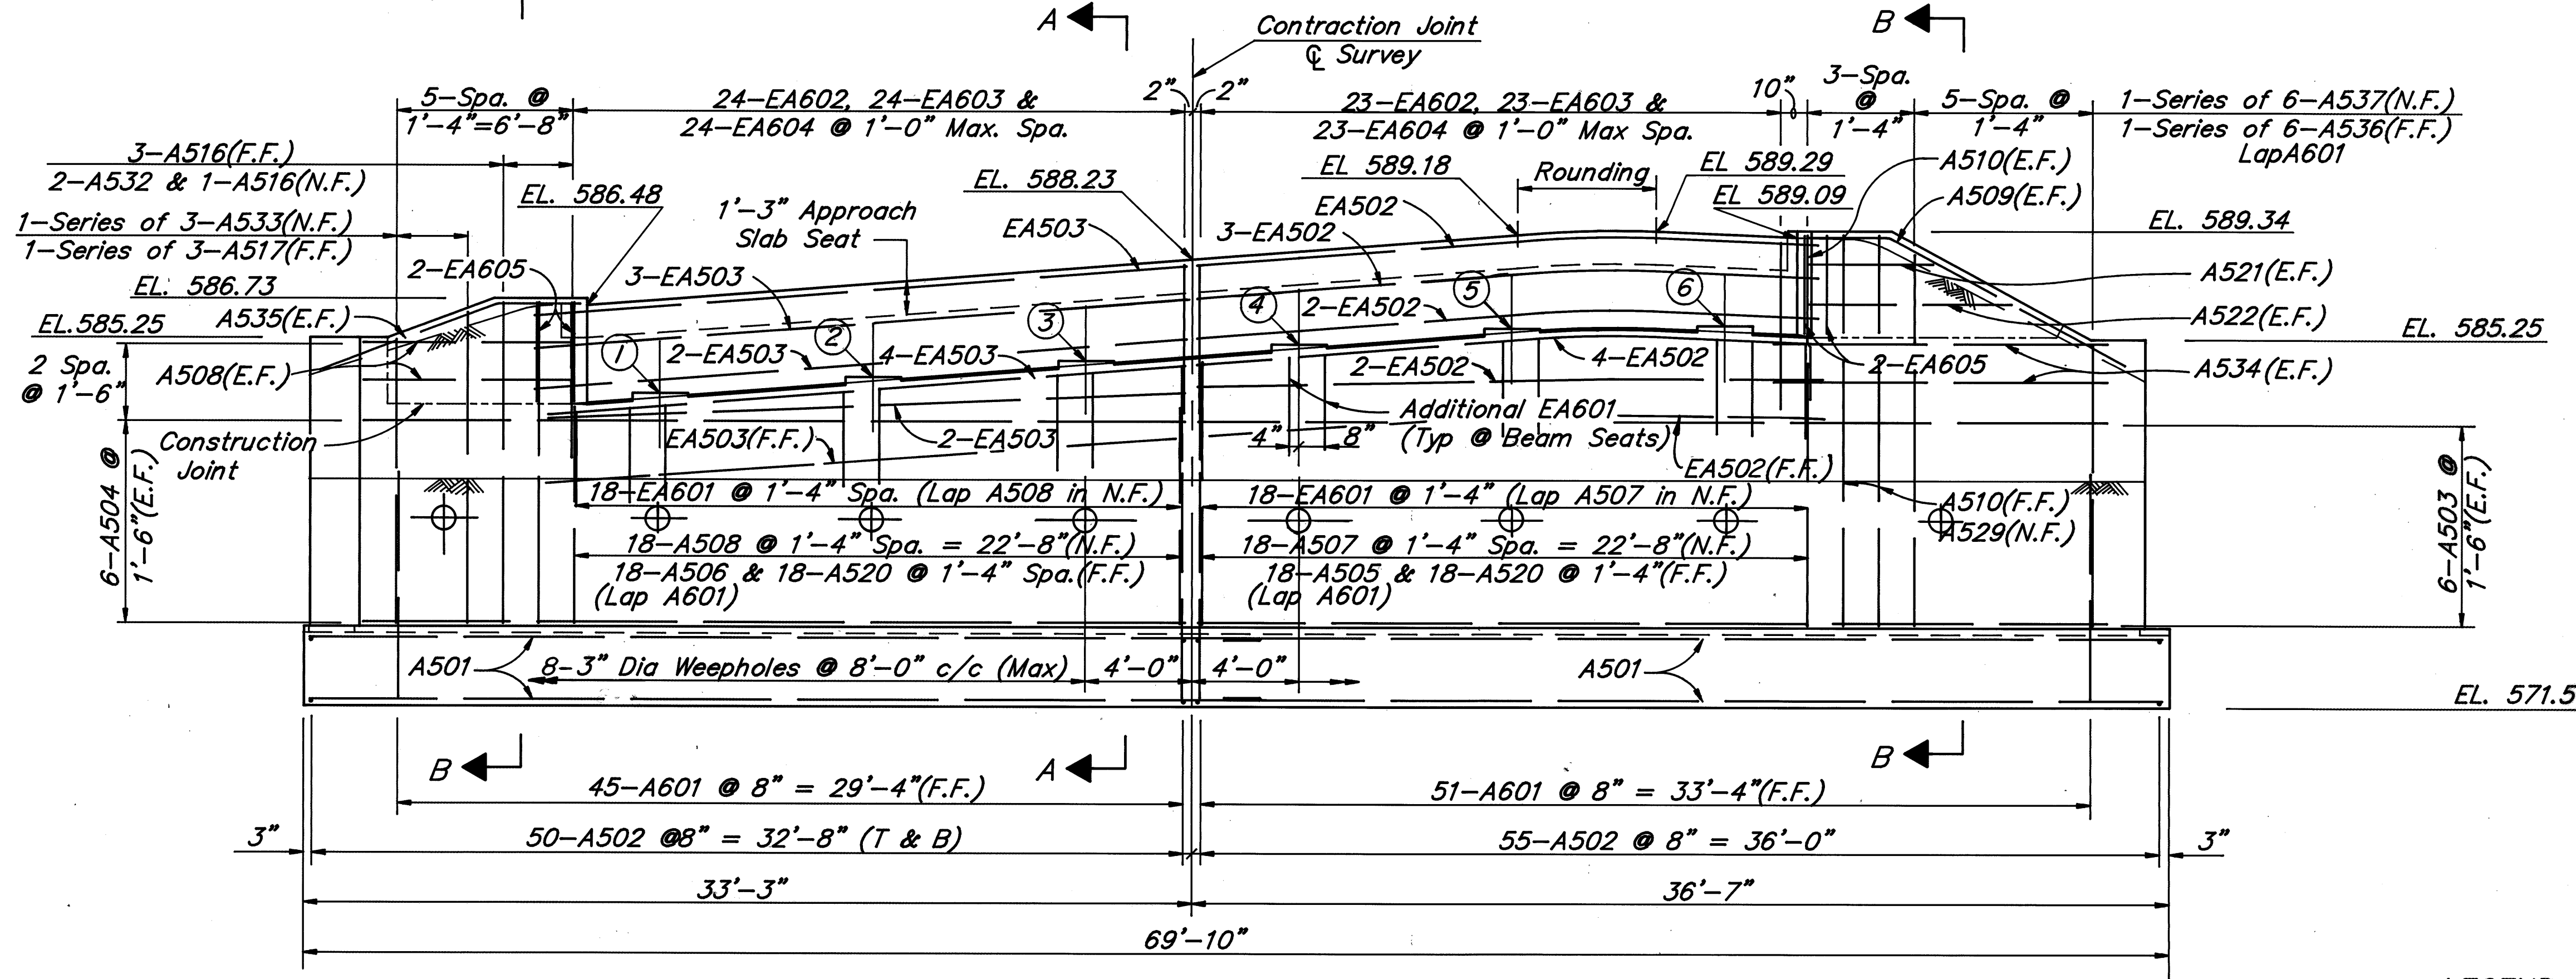 A
Contraction Joint
℄ Survey
B
5-Spa. @
1'-4"=6'-8"
24-EA602, 24-EA603 &
24-EA604 @ 1'-0" Max. Spa.
2"
2"
23-EA602, 23-EA603 &
23-EA604 @ 1'-0" Max Spa.
10"
3-Spa.
@
1'-4"
5-Spa. @
1'-4"
1-Series of 6-A537(N.F.)
1-Series of 6-A536(F.F.)
LapA601
3-A516(F.F.)
2-A532 & 1-A516(N.F.)
1-Series of 3-A533(N.F.)
1-Series of 3-A517(F.F.)
EL. 586.48
1'-3" Approach
Slab Seat
EL. 588.23
EA503
EL 589.18
Rounding
EL 589.29
EL 589.09
A510(E.F.)
A509(E.F.)
EL. 589.34
EA502
3-EA502
2-EA605
3-EA503
EL. 586.73
EL.585.25
A535(E.F.)
A521(E.F.)
A522(E.F.)
EL. 585.25
2 Spa.
@ 1'-6"
A508(E.F.)
1
2-EA503
2
4-EA503
3
4
2-EA502
5
6
2-EA502
4-EA502
2-EA605
A534(E.F.)
Construction
Joint
EA503(F.F.)
2-EA503
4"
8"
Additional EA601
(Typ @ Beam Seats)
EA502(F.F.)
6-A504 @
1'-6"(E.F.)
18-EA601 @ 1'-4" Spa. (Lap A508 in N.F.)
18-EA601 @ 1'-4" (Lap A507 in N.F.)
A510(F.F.)
A529(N.F.)
6-A503 @
1'-6"(E.F.)
18-A508 @ 1'-4" Spa. = 22'-8"(N.F.)
18-A506 & 18-A520 @ 1'-4" Spa.(F.F.)
(Lap A601)
18-A507 @ 1'-4" Spa. = 22'-8"(N.F.)
18-A505 & 18-A520 @ 1'-4"(F.F.)
(Lap A601)
A501
8-3" Dia Weepholes @ 8'-0" c/c (Max)
4'-0"
4'-0"
A501
EL. 571.5
B
A
B
45-A601 @ 8" = 29'-4"(F.F.)
51-A601 @ 8" = 33'-4"(F.F.)
3"
50-A502 @8" = 32'-8" (T & B)
55-A502 @ 8" = 36'-0"
3"
33'-3"
36'-7"
69'-10"